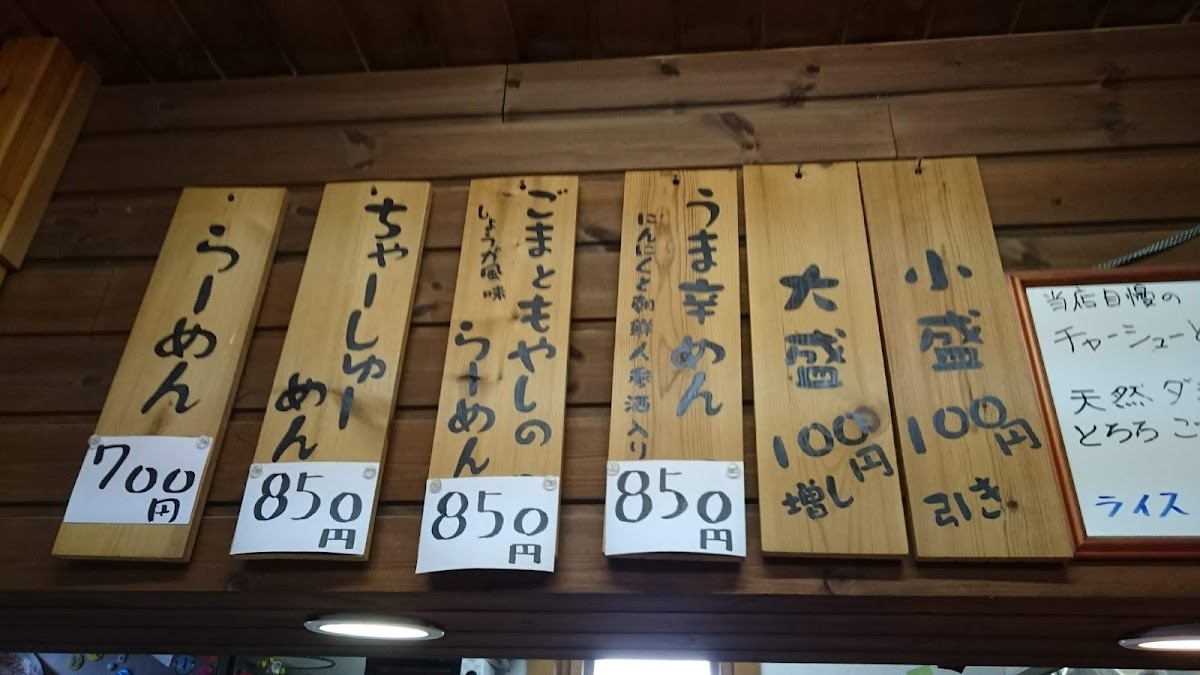 らーめん
700円
ちゃーしゅー
めん
850円
ごまともやしの
らーめん
しょうが風味
850円
うま辛めん
にんにくと朝鮮人参酒入り
850円
大盛
100円
増し
小盛
100円
引き
当店自慢の
チャーシューと
天然ダ
とちらこ
ライス